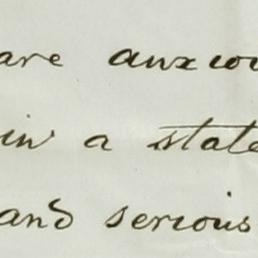 are anxiou
in a state
and serious